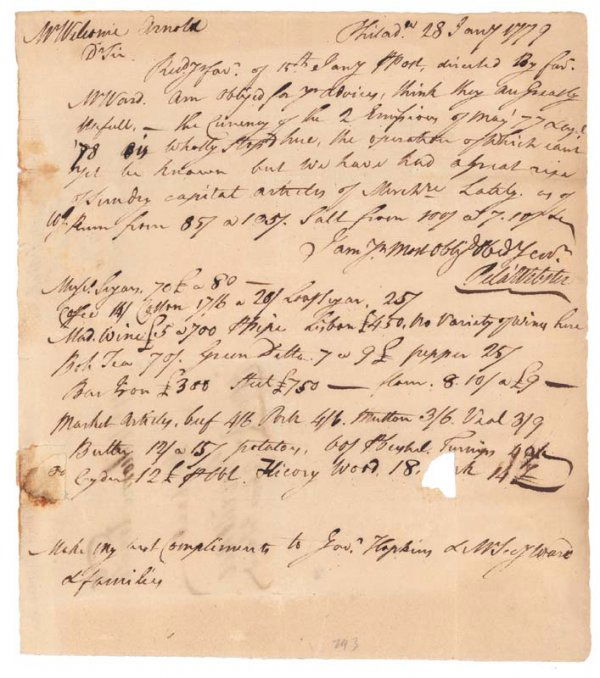 Mr Welcome Arnold
Philada 28 Jany 1779
Dr Sir
Recd yr favr. of 15th Jany Post, directed By favr.
Mr Ward. Am obliged for yr advices, think they are Greatly
usefull, — the Currency of the 2 Emissions of May 77 &
'78 wholly stop'd here, the operation of which cant
yet be known but we have had a great rise
of Sundry capital articles of Lately. as of
Rum from 85/ a 105/. Salt from
I am Yr Most oblig'd Hbl Servt.
Pelah Webster
Sugar. 70£ a 80 —
Coffee 14/ Cotton 17/6 a 20/ Loaf Sugar, 25/
Mad. Wine £5 a 700 Pipe Lisbon £450, No Variety of wines here
Boh Tea 70/. Green Detto. 7 a 9£ pepper 25/
Bar Iron £300 Steel £750 — flour. 8.10/ a £9 —
Market Articles, beef 4/6 Pork 4/6. Mutton 3/6. Veal 3/9
Butter 12/ a 15/ potatoes, 60/ Turnips
Cyder 12£ Hickory Wood 18. 14£
Make my best Compliments to Govr. Hopkins & Mr Secy Ward
& families
293